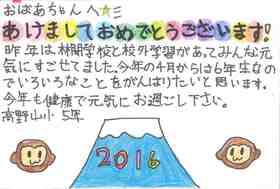 おばあちゃんへ☆ミ
あけましておめでとうございます!
昨年は林間学校と校外学習があってみんな元
気にすごせてました。今年の4月からは6年生なの
でいろいろなことをがんばりたいと思います。
今年も健康で元気にお過ごし下さい。
高野山小 5年
2016